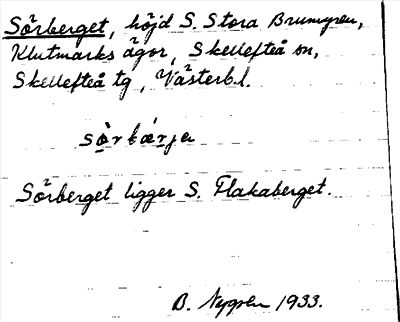 Sörberget, höjd S. Stora Brumyren,
Klutmarks ägor, Skellefteå sn,
Skellefteå tg, Västerb.l.
Sörberget ligger S. Flakaberget.
B. 1933.